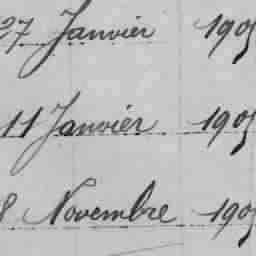 27 Janvier 190
11 Janvier 190
8 Novembre 190